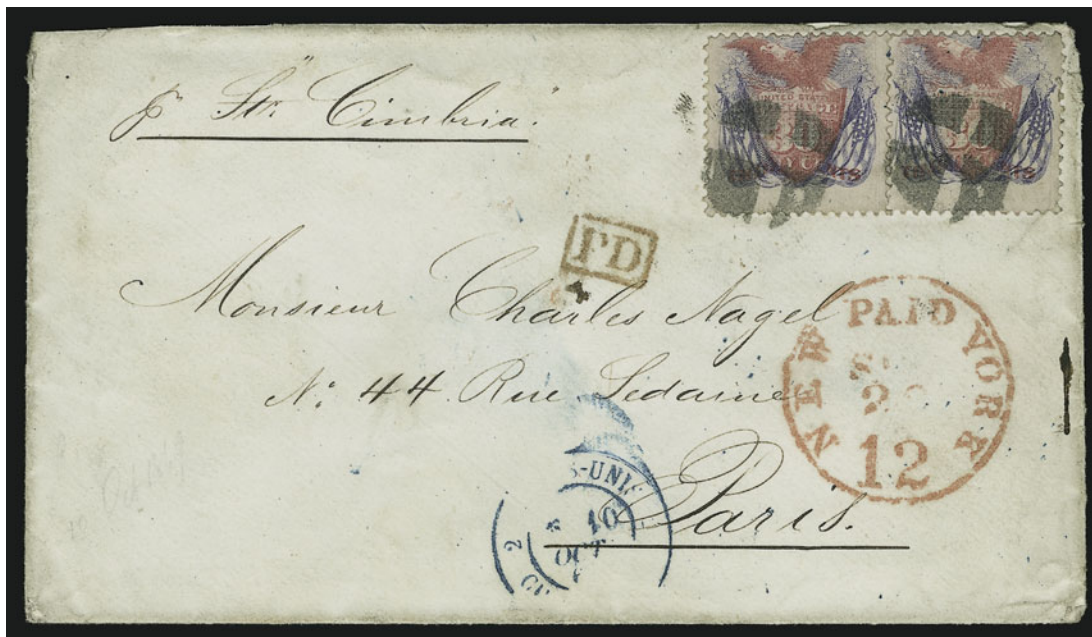 p Str "Cimbria"
UNITED STATES
POSTAGE
30
UNITED STATES
POSTAGE
30
PD
Monsieur Charles Nagel
No. 44 Rue Sedaine
Paris.
NEW PAID YORK
12
S-UNIS
2
10
OCT